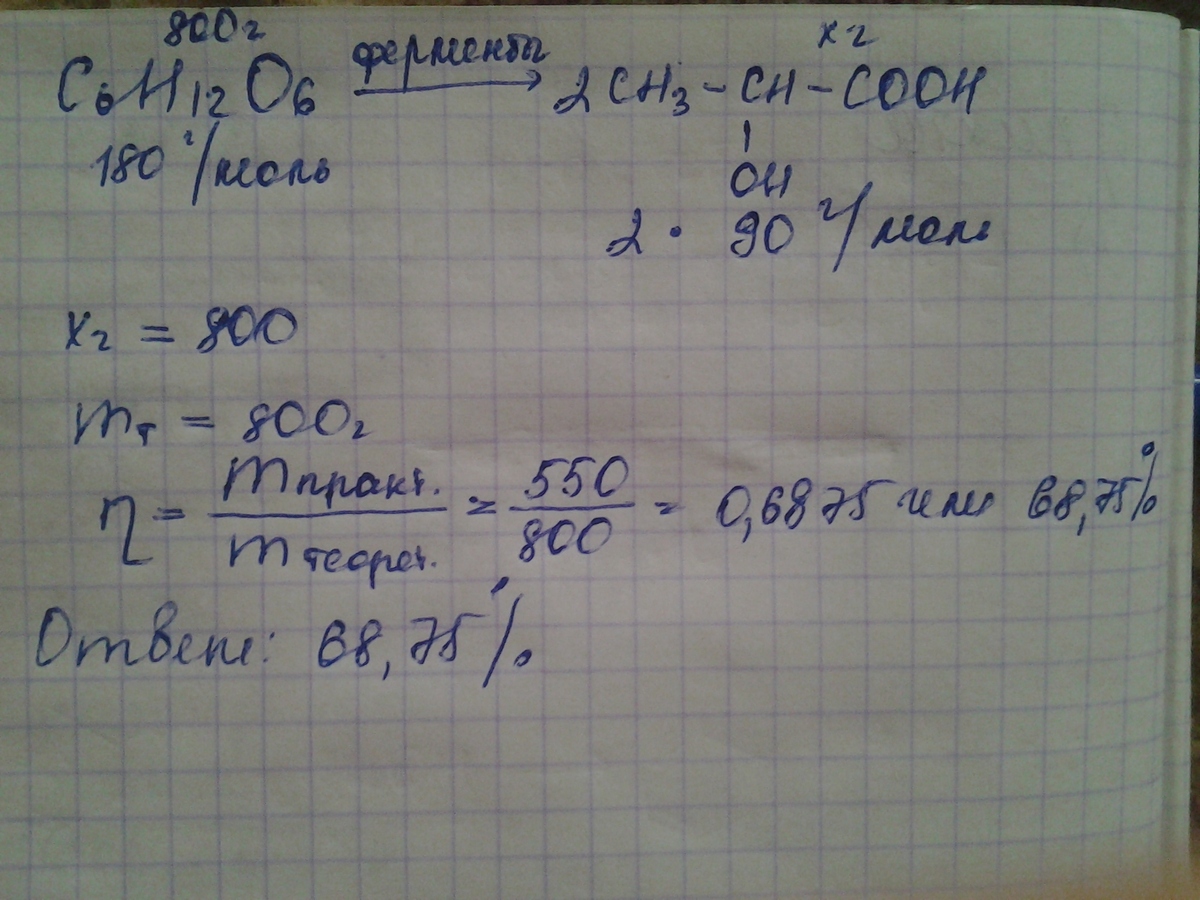 800г х г
C₆H₁₂O₆ ферменты → 2CH₃-CH-COOH
180 г/моль OH
2 · 90 г/моль
хг = 800
mт = 800г
η = mпракт. / mтеорет. = 550/800 = 0,6875 или 68,75%
Ответ: 68,75%